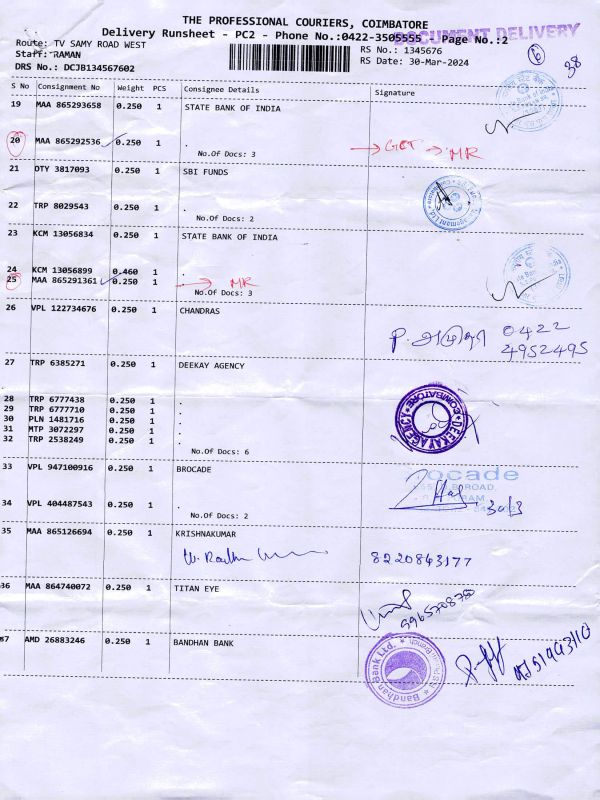 THE PROFESSIONAL COURIERS, COIMBATORE
Delivery Runsheet - PC2 - Phone No.:0422-3505555 - Page No.:2
DOCUMENT DELIVERY
Route: TV SAMY ROAD WEST
Staff: RAMAN
DRS No.: DCJB134567602
RS No.: 1345676
RS Date: 30-Mar-2024
6
38
S No Consignment No Weight PCS Consignee Details Signature
19 MAA 865293658 0.250 1 STATE BANK OF INDIA
20 MAA 865292536 0.250 1 .
No.Of Docs: 3
→ GCT → MR
21 DTY 3817093 0.250 1 SBI FUNDS
22 TRP 8029543 0.250 1 .
No.Of Docs: 2
23 KCM 13056834 0.250 1 STATE BANK OF INDIA
24 KCM 13056899 0.460 1 .
25 MAA 865291361 0.250 1 → MR
No.Of Docs: 3
26 VPL 122734676 0.250 1 CHANDRAS
P. அமுதா 0422
4952495
27 TRP 6385271 0.250 1 DEEKAY AGENCY
28 TRP 6777438 0.250 1 .
29 TRP 6777710 0.250 1 .
30 PLN 1481716 0.250 1 .
31 MTP 3072297 0.250 1 .
32 TRP 2538249 0.250 1 .
No.Of Docs: 6
DEEKAY AGENCY COIMBATORE
33 VPL 947100916 0.250 1 BROCADE
ocade
34 VPL 404487543 0.250 1 .
No.Of Docs: 2
30/3
35 MAA 865126694 0.250 1 KRISHNAKUMAR
8220843177
36 MAA 864740072 0.250 1 TITAN EYE
37 AMD 26883246 0.250 1 BANDHAN BANK
Bandhan Bank Ltd.